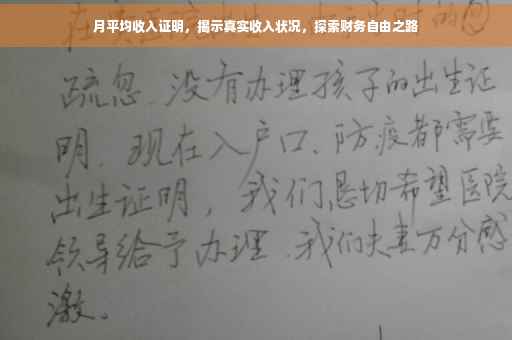 月平均收入证明，揭示真实收入状况，探索财务自由之路
疏忽.没有办理孩子的出生证
明.现在入户口、防疫都需要
出生证明，我们恳切希望医院
领导给予办理.我们夫妻万分感
激。